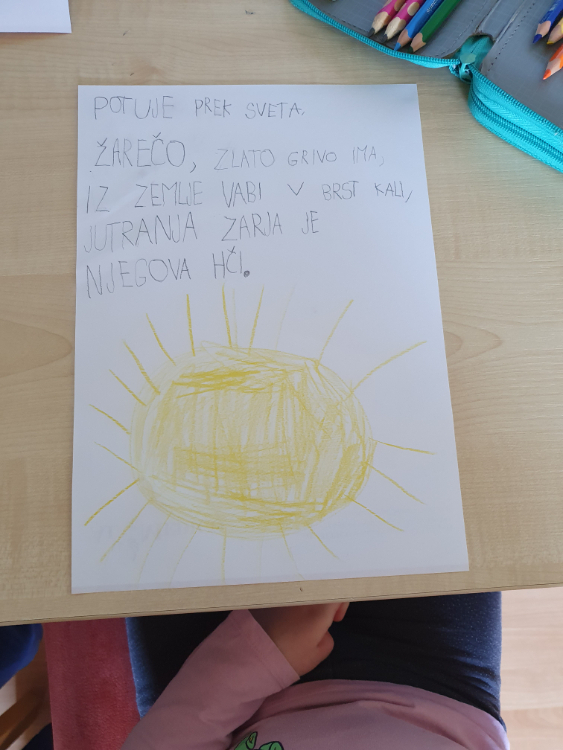 POTUJE PREK SVETA.
ŽAREČO, ZLATO GRIVO IMA,
IZ ZEMLJE VABI V BRST KALI,
JUTRANJA ZARJA JE
NJEGOVA HČI.